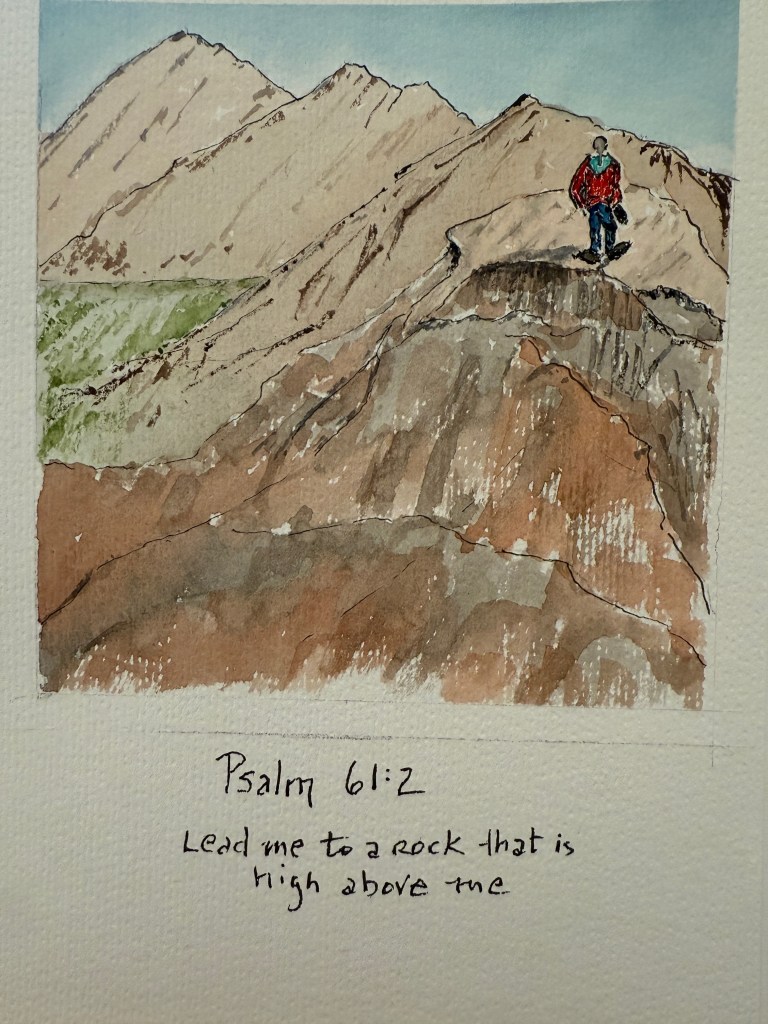 Psalm 61:2
Lead me to a rock that is
high above me